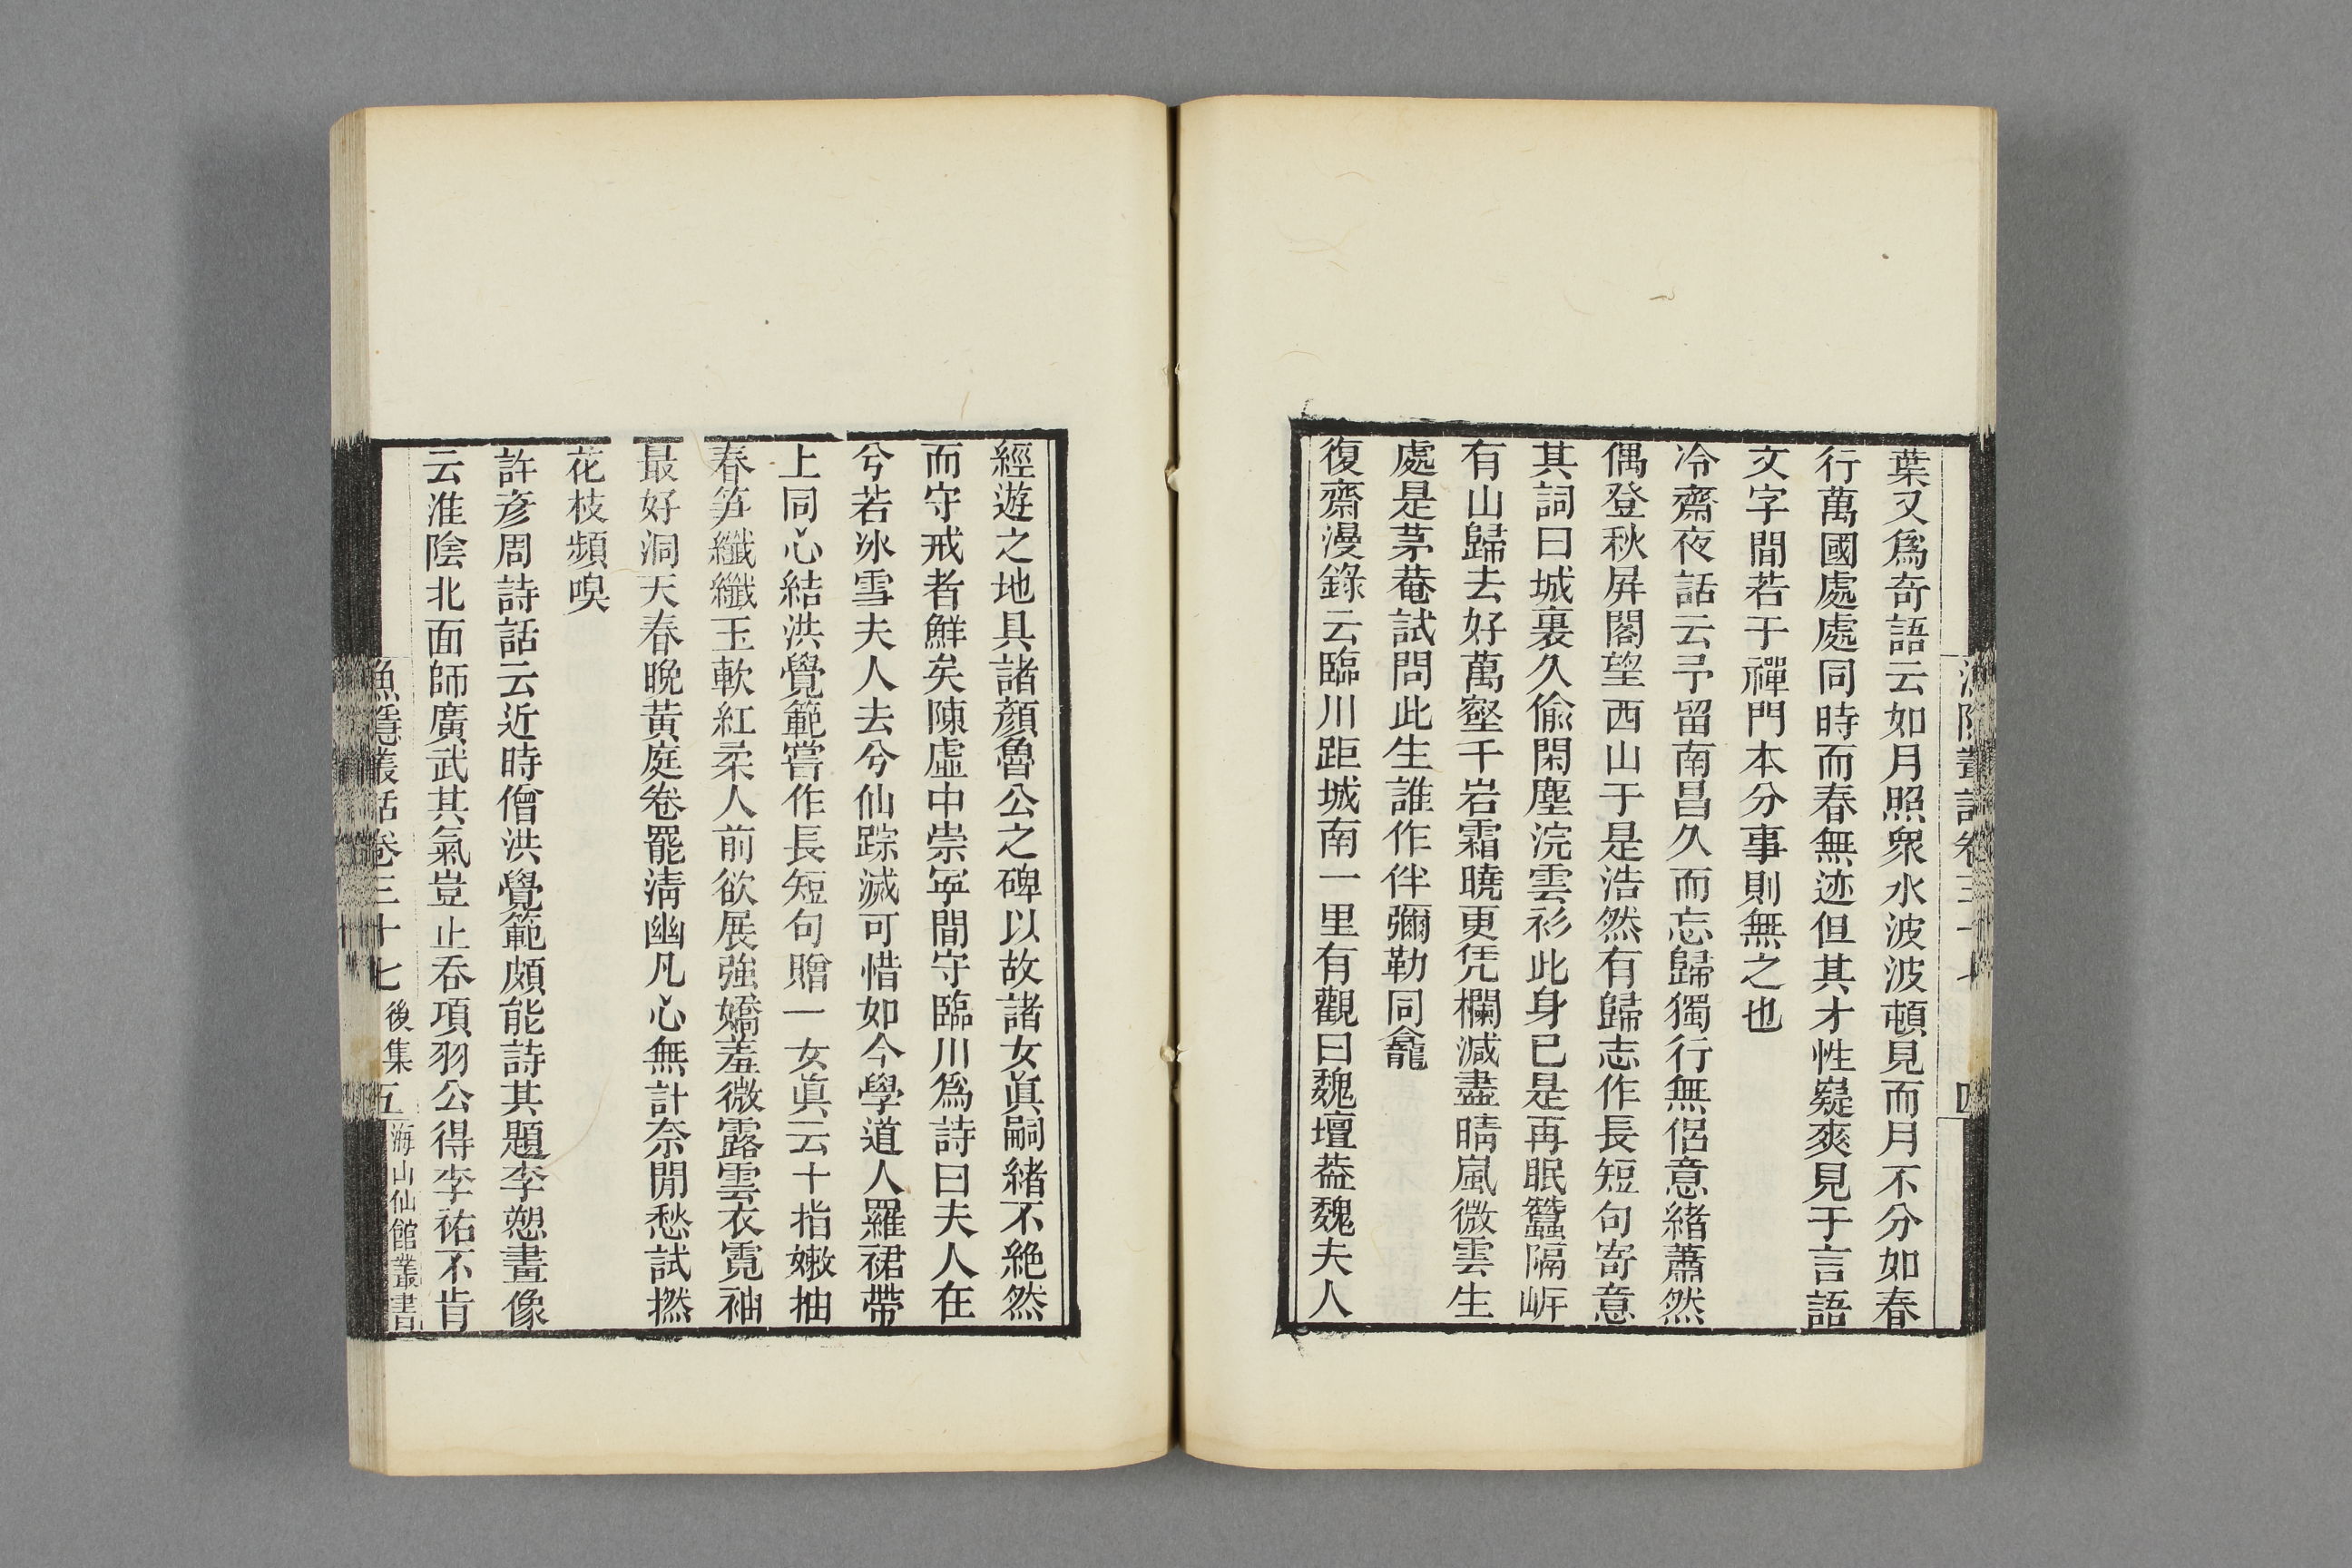 葉又爲奇語云如月照衆水波波頓見而月不分如春
行萬國處處同時而春無迹但其才性嶷爽見于言語
文字間若于禪門本分事則無之也
冷齋夜話云予留南昌久而忘歸獨行無侶意緒蕭然
偶登秋屛閣望西山于是浩然有歸志作長短句寄意
其詞曰城裏久偸閑塵浣雲衫此身已是再眠蠶隔岍
有山歸去好萬壑千岩霜曉更凭欄減盡晴嵐微雲生
處是茅菴試問此生誰作伴彌勒同龕
復齋漫錄云臨川距城南一里有觀曰魏壇葢魏夫人
經遊之地具諸顏魯公之碑以故諸女眞嗣緒不絶然
而守戒者鮮矣陳虛中崇寧間守臨川爲詩曰夫人在
兮若冰雪夫人去兮仙踪滅可惜如今學道人羅裙帶
上同心結洪覺範嘗作長短句贈一女眞云十指嫩抽
春笋纖纖玉軟紅柔人前欲展強嬌羞微露雲衣霓袖
最好洞天春晚黃庭卷罷淸幽凡心無計奈閒愁試撚
花枝頻嗅
許彥周詩話云近時僧洪覺範頗能詩其題李愬畫像
云淮陰北面師廣武其氣豈止吞項羽公得李祐不肯
漁隱叢話卷三十七 後集 五 海山仙館叢書